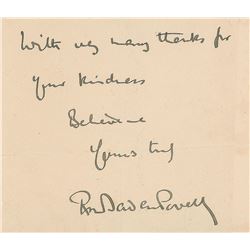 With very many thanks for
your kindness
Believe me
Yours truly
Baden Powell